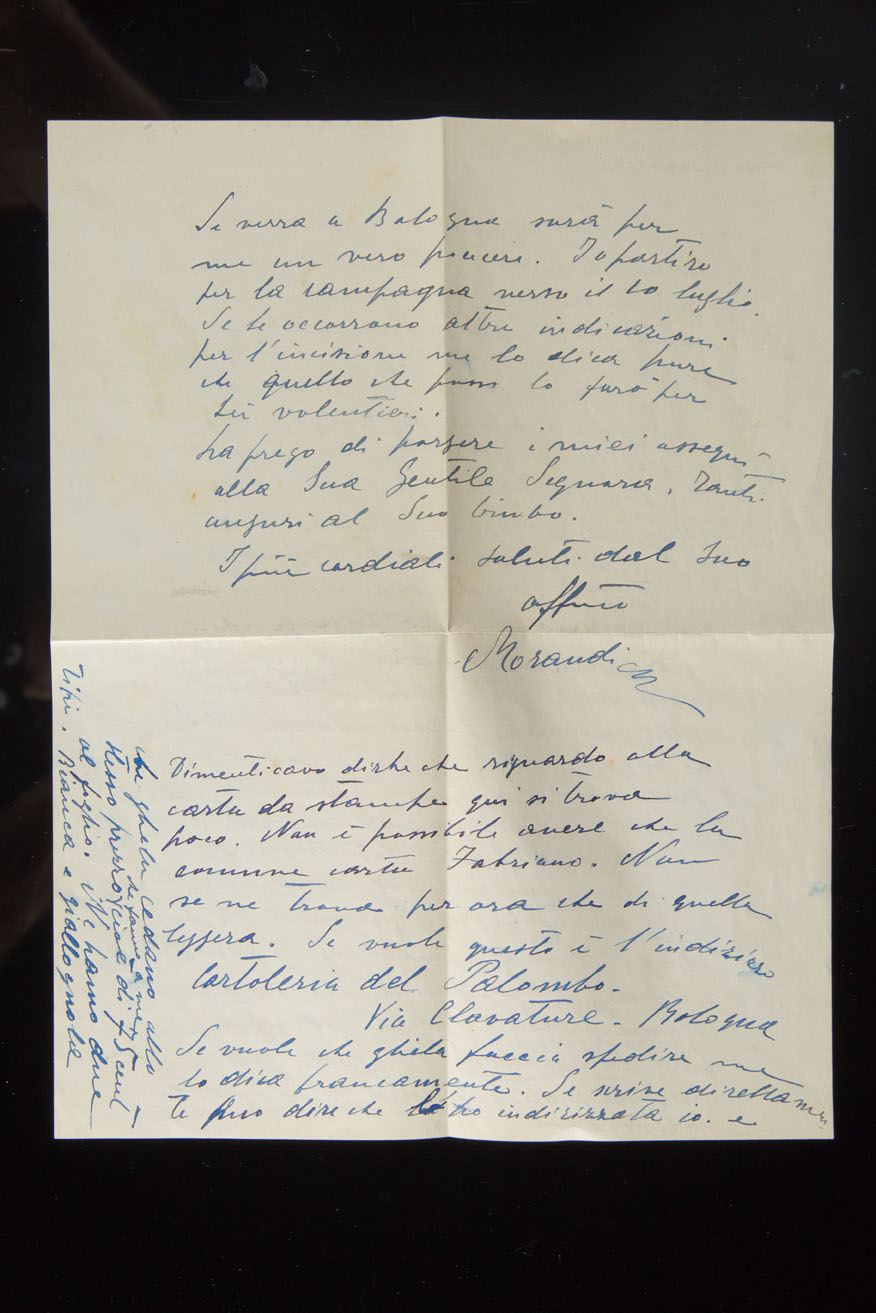 Se verrà a Bologna sarà per
me un vero piacere. Io partirò
per la campagna verso il 10 luglio.
Se le occorrono altre indicazioni
per l'incisione me lo dica pure
che quello che posso lo farò per
Lei volentieri.
La prego di porgere i miei ossequi
alla Sua Gentile Signora, Tanti
auguri al Suo bimbo.
I più cordiali saluti dal Suo
affmo
Morandi
Dimenticavo dirle che riguardo alla
carta da stampe qui si trova
poco. Non è possibile avere che la
comune carta Fabriano. Non
se ne trova per ora che di quella
leggera. Se vuole questo è l'indirizzo
Cartoleria del Palombo.
Via Clavature. Bologna
Se vuole che gliela faccia spedire me
lo dica francamente. Se scrive direttamen
te può dire che l'ho indirizzata io. e
che gliela cedano allo
stesso prezzo che fanno a me, cioè di 75 cent
al foglio. Ne hanno due
tipi. Bianca e giallognola